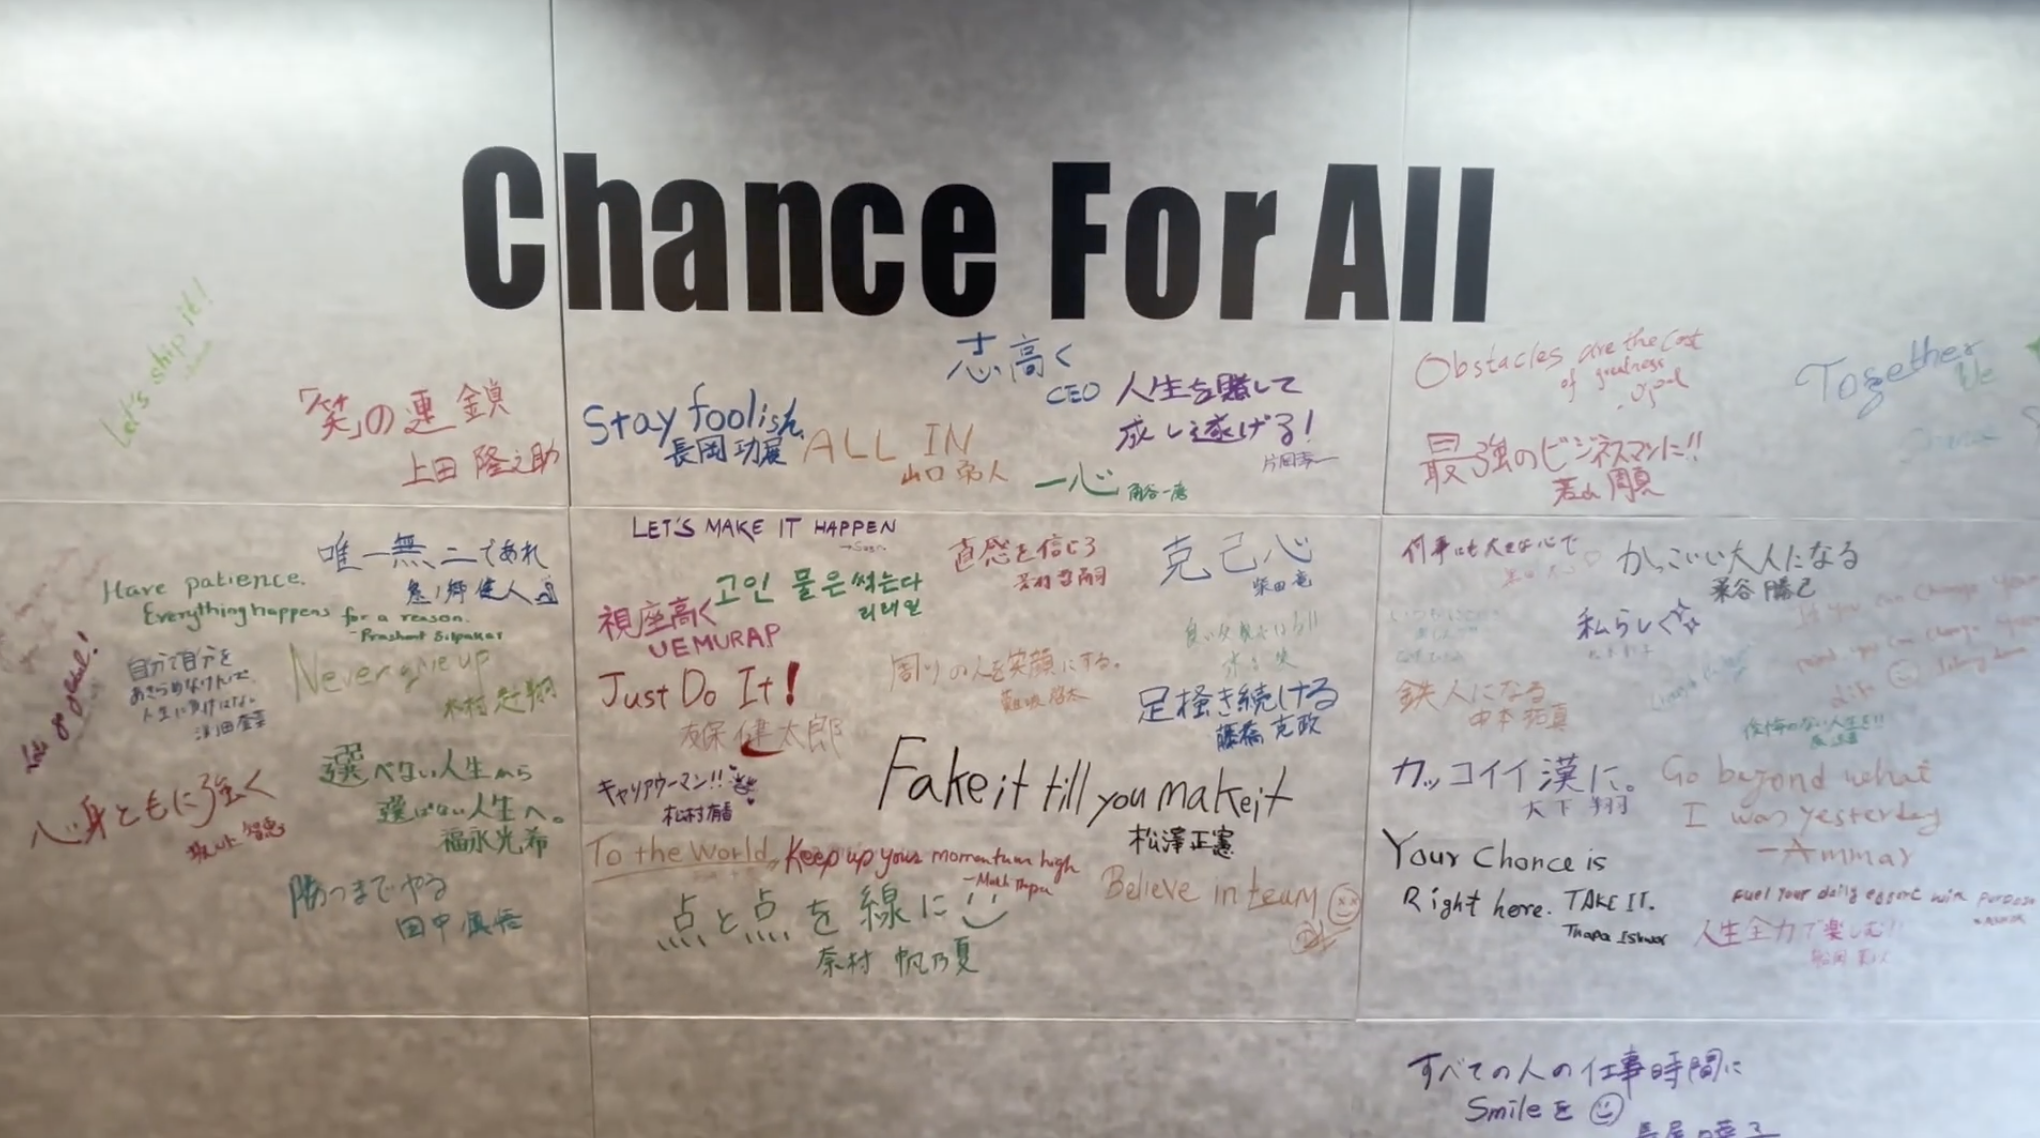 Chance For All
志高く
CEO
Let's ship it!
「笑」の連鎖
上田 隆之助
Stay foolish.
長岡 功展
ALL IN
山口
人生を賭して
成し遂げる!
一心
角谷一磨
Obstacles are the cost
of greatness
最強のビジネスマンに!!
Together
唯一無二であれ
健人
Have patience.
Everything happens for a reason.
-Prashant Silpakar
Let's go global!
自分で自分を
あきらめなければ、
人生に負けはない
Never give up
木村
選べない人生から
選ばない人生へ。
福永光希
心身ともに強く
智恵
勝つまでやる
田中 慎悟
LET'S MAKE IT HAPPEN
直感を信じろ
克己心
柴田 竜
고인 물은 썩는다
視座高く
UEMURAP
Just Do It!
友保 健太郎
周りの人を笑顔にする。
足掻き続ける
藤橋 克政
Fake it till you make it
松澤正憲
キャリアウーマン!!
松村有香
To the World
Keep up your momentum high
点と点を線に
奈村 帆乃夏
Believe in team
何事にも大きな心で
かっこいい大人になる
粟谷 勝己
私らしく
If you can change your
mind you can change your
life
鉄人になる
中本 拓真
後悔のない人生を!!
カッコイイ漢に。
大下 翔
Go beyond what
I was yesterday
-Ammar
Your Chance is
Right here. TAKE IT.
Thapa Ishwor
Fuel your daily effort with purpose
人生全力で楽しむ!!
すべての人の仕事時間に
Smileを